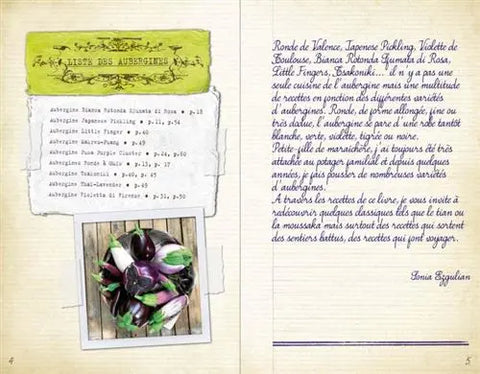 LISTE DES AUBERGINES
Aubergine Bianca Rotonda Sfumata di Rosa • p.18
Aubergine Japanese Pickling • p.11, p.54
Aubergine Little Finger • p.60
Aubergine
Aubergine Pusa Purple Cluster • p.24, p.60
Aubergine Ronde à Oeuf • p.13, p. 17
Aubergine Tsakoniki • p.40, p.45
Aubergine Thai-Lavender • p.49
Aubergine Violetta di Firenze • p.31, p.50
4
Ronde de Valence, Japenese Pickling, Violette de
Toulouse, Bianca Rotonda Sfumata di Rosa,
Little Fingers, Tsakoniki... il n'y a pas une
seule cuisine de l'aubergine mais une multitude
de recettes en fonction des différentes variétés
d'aubergines. Ronde, de forme allongée, fine ou
très dodue, l'aubergine se pare d'une robe tantôt
blanche, verte, violette, tigrée ou noire.
Petite-fille de maraîchère, j'ai toujours été très
attachée au potager familial et depuis quelques
années, je fais pousser de nombreuses variétés
d'aubergines.
A travers les recettes de ce livre, je vous invite à
redécouvrir quelques classiques tels que le tian ou
la moussaka mais surtout des recettes qui sortent
des sentiers battus, des recettes qui font voyager.
Sonia Ezgulian
5